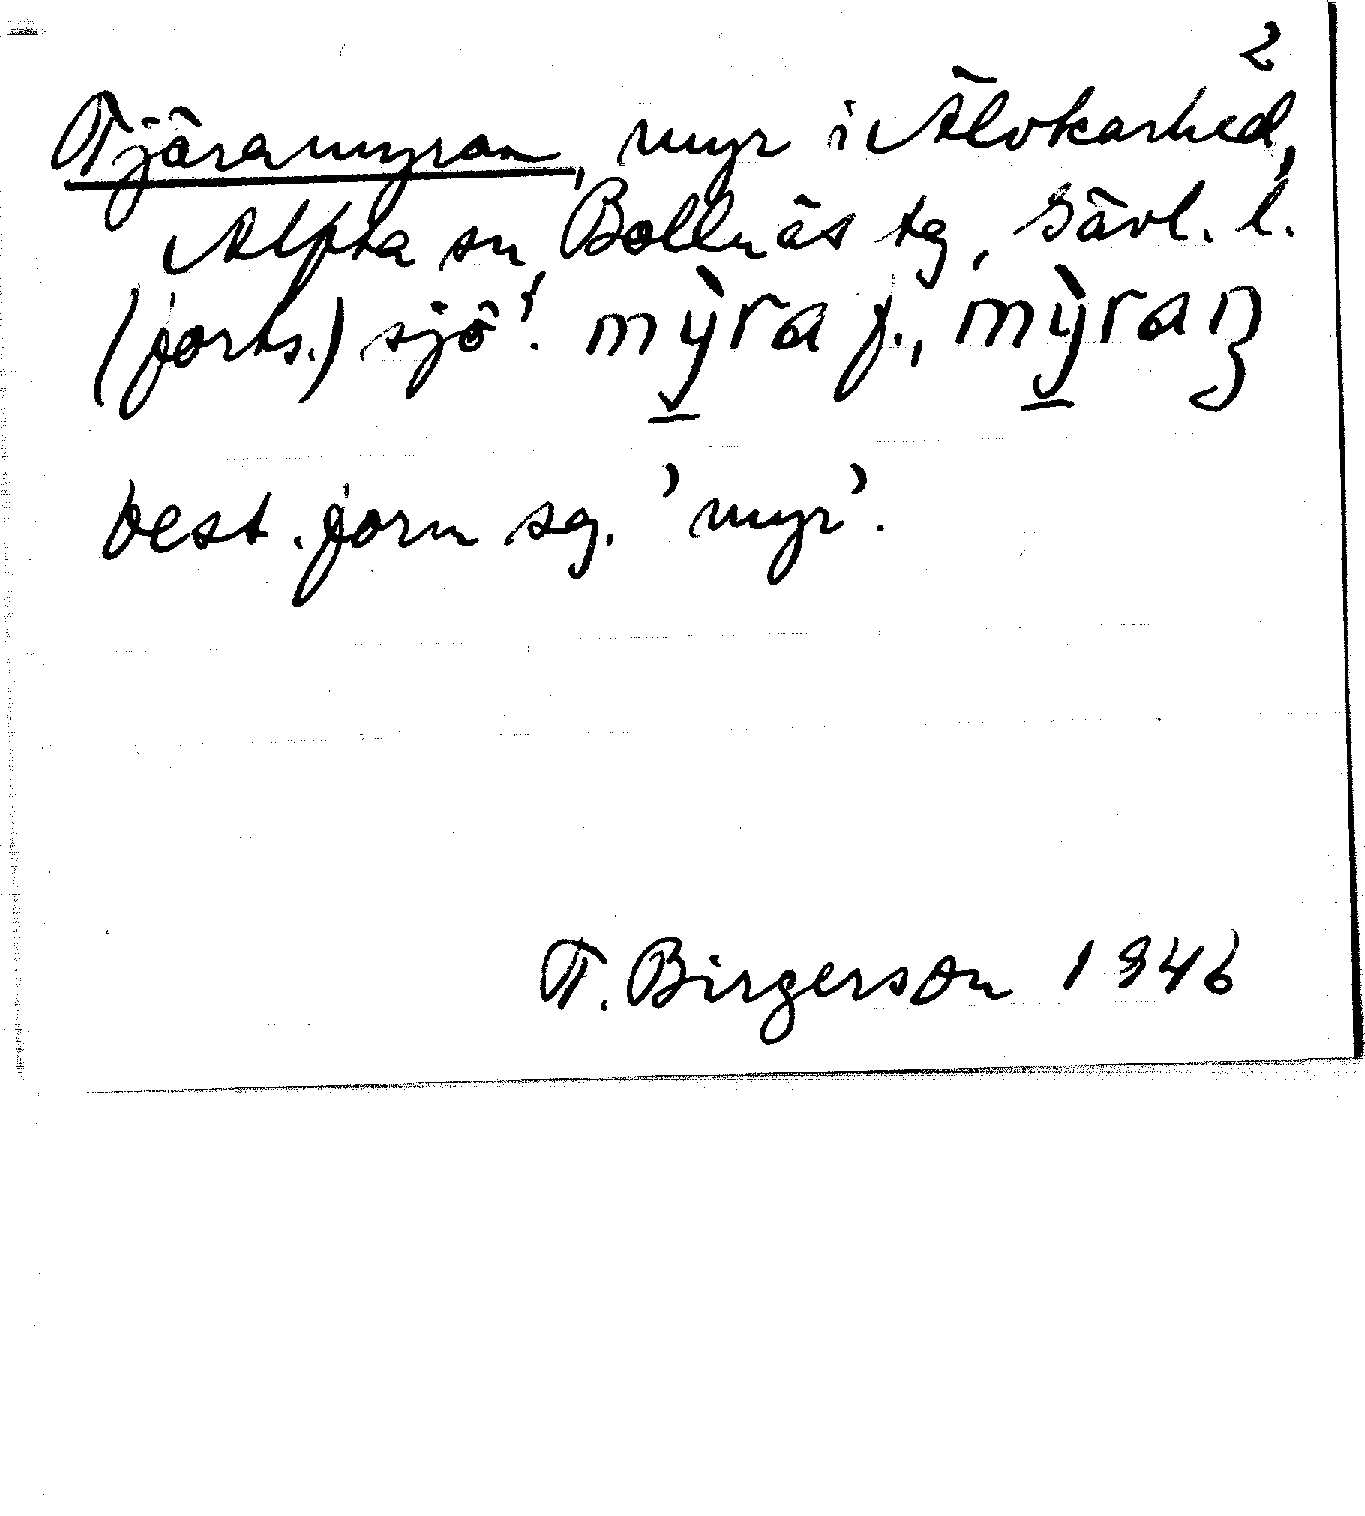 2
Tjäramyran, myr i Älvkarhed,
Alfta sn, Bollnäs tg, Gävl. l.
(forts.) sjö'. mỳra f., mỳraŋ
best. form sg. 'myr'.
T. Birgerson 1946